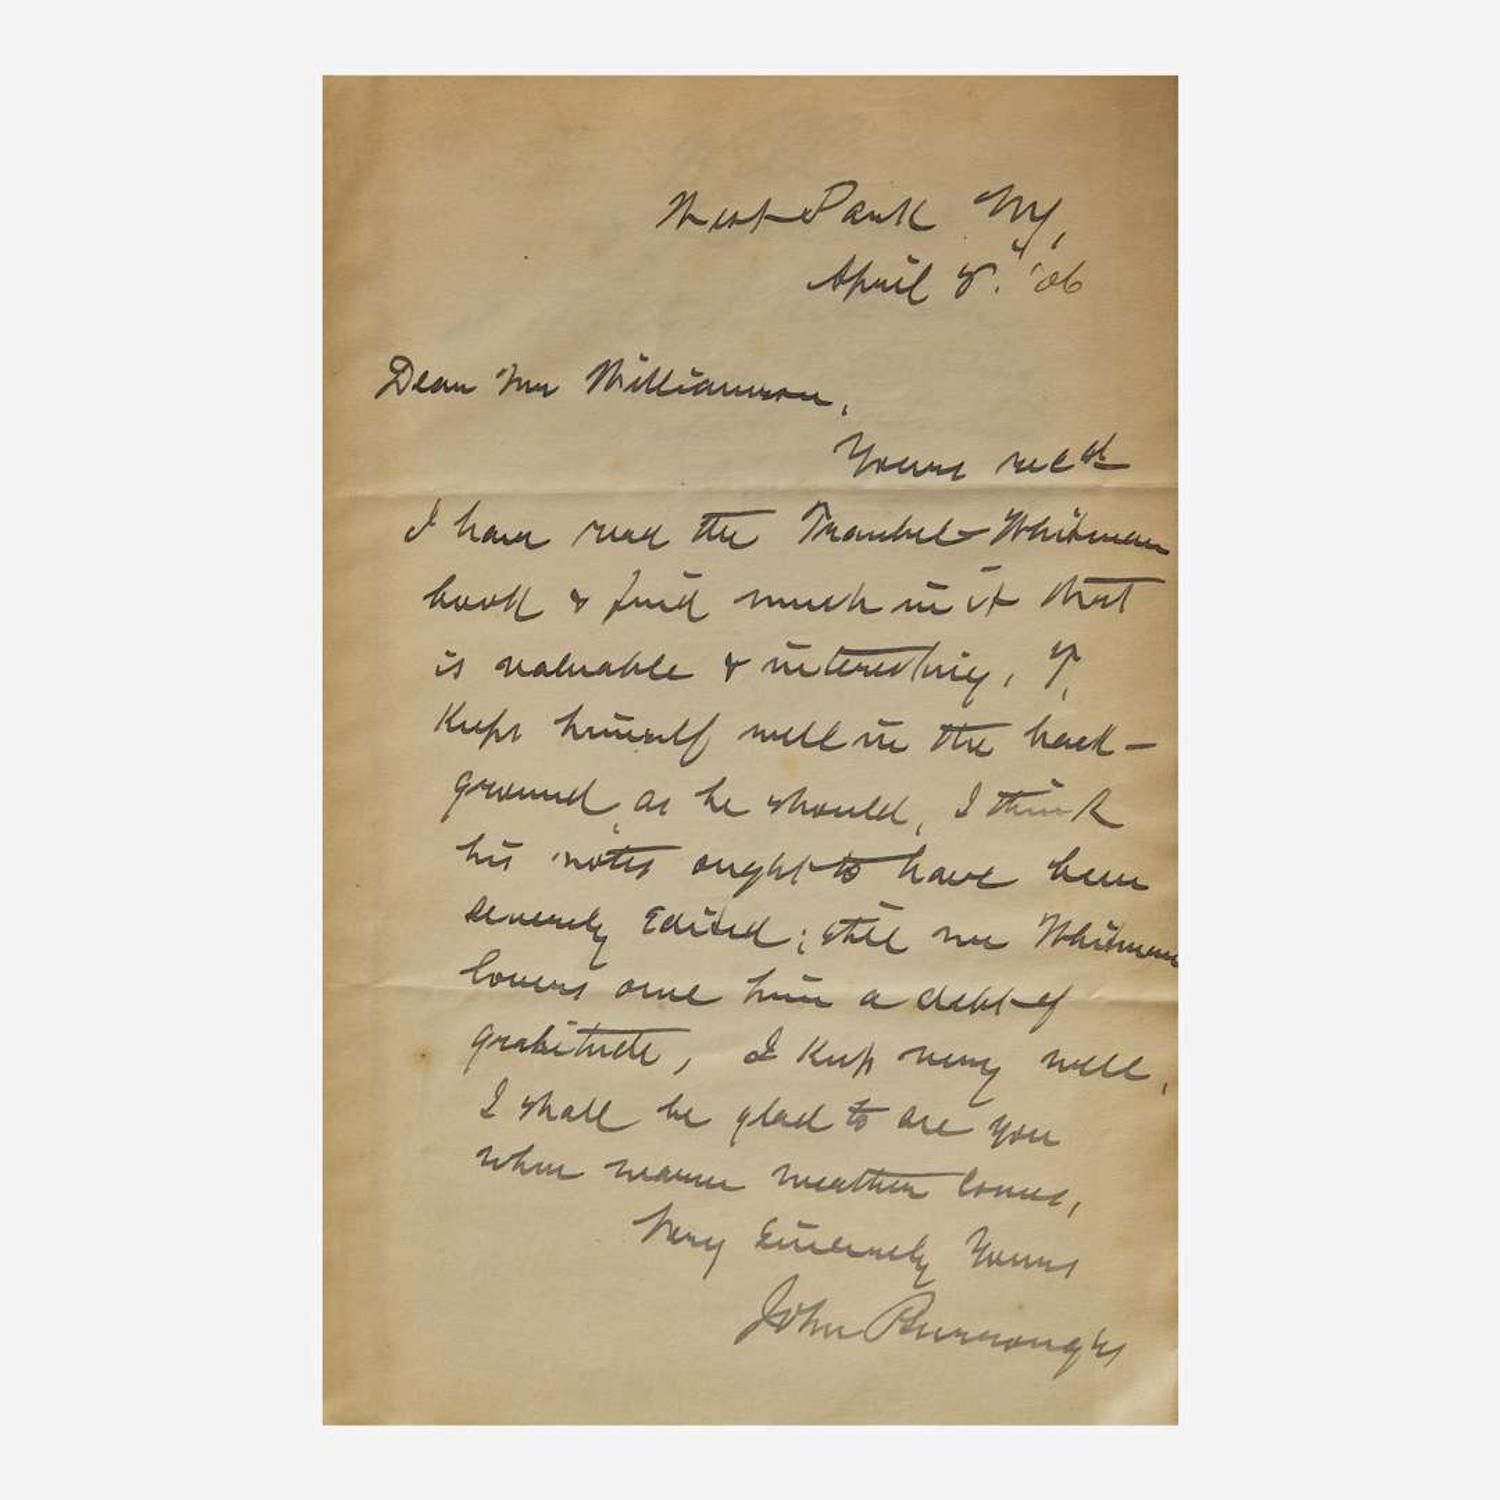 West Park NY,
April 8. '06
Dear Mr Williamson,
Yours recd
I have read the Traubel-Whitman
book & find much in it that
is valuable & interesting, T,
Keeps himself well in the back-
ground, as he should, I think
his notes ought to have been
severely edited; still we Whitman
lovers owe him a debt of
gratitude, I keep very well,
I shall be glad to see you
when warmer weather comes,
Very Sincerely Yours
John Burroughs